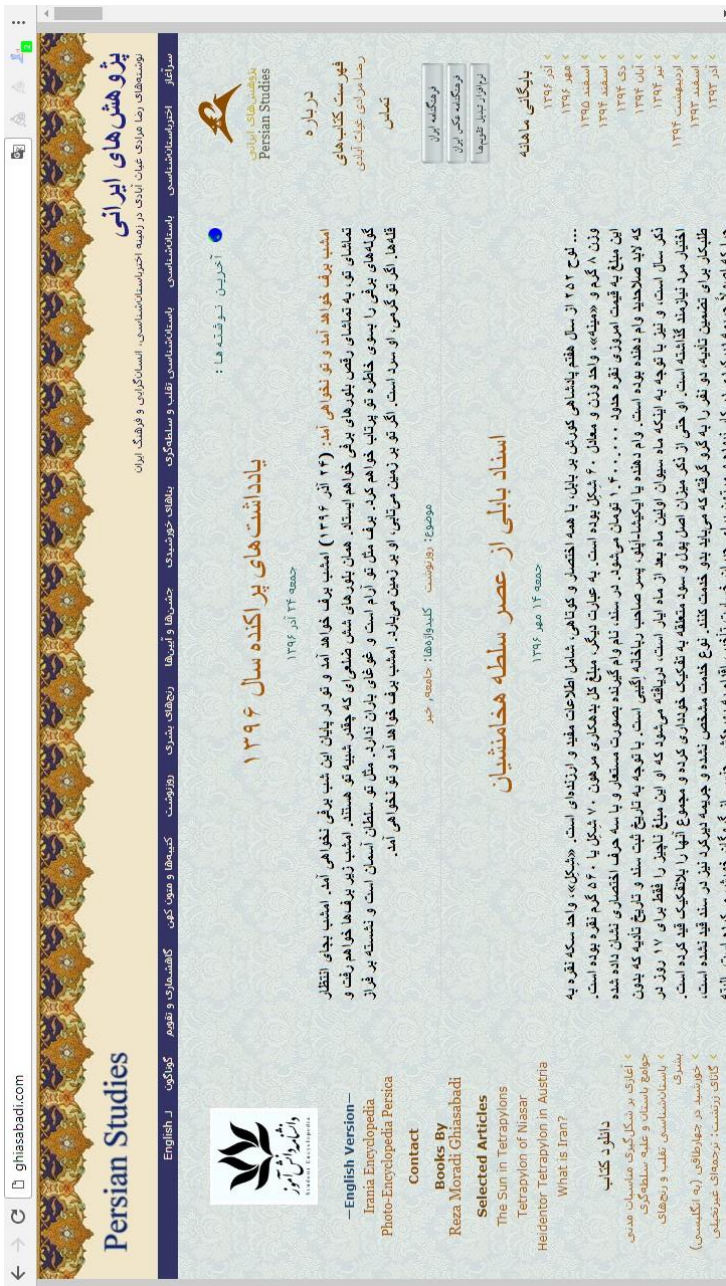 ghiasabadi.com
2
Persian Studies
پژوهش‌های ایرانی
نوشته‌های رضا مرادی غیاث آبادی در زمینه اخترباستان‌شناسی، انسان‌گرایی و فرهنگ ایران
سرآغاز اخترباستان‌شناسی باستان‌شناسی باستان‌شناسی تقلب و سلطه‌گری بناهای خورشیدی جشن‌ها و آیین‌ها رنج‌های بشری روزنوشت کتیبه‌ها و متون کهن گاهشماری و تقویم گوناگون لـ English
پژوهش‌های ایرانی
Persian Studies
درباره
فهرست کتاب‌های
رضا مرادی غیاث آبادی
تماس
فرهنگنامه ایران
فرهنگنامه عکس ایران
نرم‌افزار تبدیل تقویم‌ها
بایگانی ماهانه
آذر ۱۳۹۶
مهر ۱۳۹۶
اسفند ۱۳۹۵
اسفند ۱۳۹۴
دی ۱۳۹۴
آبان ۱۳۹۴
تیر ۱۳۹۴
اردیبهشت ۱۳۹۴
اسفند ۱۳۹۳
آذر ۱۳۹۳
آخرین نوشته‌ها :
یادداشت‌های پراکنده سال ۱۳۹۶
جمعه ۲۴ آذر ۱۳۹۶
امشب برف خواهد آمد و تو نخواهی آمد: (۲۴ آذر ۱۳۹۶) امشب برف خواهد آمد و تو در پایان این شب برفی نخواهی آمد. امشب بجای انتظار
تماشای تو، به تماشای رقص بلورهای برفی خواهم ایستاد. همان بلورهای شش ضلعی‌ای که چقدر شبیه تو هستند. امشب زیر برف‌ها خواهم رفت و
گوله‌های برفی را بسوی خاطره تو پرتاب خواهم کرد. برف مثل تو آرام است و غوغای باران ندارد. مثل تو سلطان آسمان است و نشسته بر فراز
قله‌ها. اگر تو گرمی، او سرد است. اگر تو بر زمین می‌تابی، او بر زمین می‌بارد. امشب برف خواهد آمد و تو نخواهی آمد.
موضوع: روزنوشت کلیدواژه‌ها: جامعه، خبر
اسناد بابلی از عصر سلطه هخامنشیان
جمعه ۱۴ مهر ۱۳۹۶
... لوح ۲۵۲ از سال هفتم پادشاهی کورش بر بابل، با همه اختصار و کوتاهی، شامل اطلاعات مفید و ارزنده‌ای است. «شِکِل»، واحد سکه نقره به
وزن ۸ گرم و «مینه»، واحد وزن و معادل ۶۰ شکل بوده است. به عبارت دیگر، مبلغ کل بدهکاری مرهون ۷۰ شکل یا ۵۶۰ گرم نقره بوده است.
این مبلغ به قیمت امروزی نقره حدود ۱.۴۰۰.۰۰۰ تومان می‌شود. در سند، نام وام گیرنده بصورت مستعار و با سه حرف اختصاری نشان داده شده
که لابد صلاحدید وام دهنده بوده است. وام دهنده یا ایکیشا-اَپلو، پسر صاحب رباخانه اگیبی است. با توجه به تاریخ ثبت سند و تاریخ تادیه که بدون
ذکر سال است، و نیز با توجه به اینکه ماه سیوان اولین ماه بعد از ماه ایار است، دریافته می‌شود که او این مبلغ ناچیز را فقط برای ۱۷ روز در
اختیار مرد نیازمند گذاشته است. او حتی از ذکر میزان اصل پول و سود متعلقه به تفکیک خودداری کرده و مجموع آنها را بلاتفکیک قید کرده است.
طلبکار برای تضمین تادیه، دو نفر را به گرو گرفته که می‌باید بدو خدمت کنند. نوع خدمت مشخص نشده و جریمه دیرکرد نیز در سند قید نشده است،
دانش‌نامه دانش‌آموز
Student Encyclopedia
—English Version—
Irania Encyclopedia
Photo-Encyclopedia Persica
Contact
Books By
Reza Moradi Ghiasabadi
Selected Articles
The Sun in Tetrapylons
Tetrapylon of Niasar
Heidentor Tetrapylon in Austria
What is Iran?
دانلود کتاب
آغازی بر شکل‌گیری مناسبات مدنی
جوامع باستان و غلبه سلطه‌گری
باستان‌شناسی تقلب و رنج‌های
بشری
خورشید در چهارطاقی (به انگلیسی)
گاتای زرتشت: ترجمه‌ای غیرتخیلی